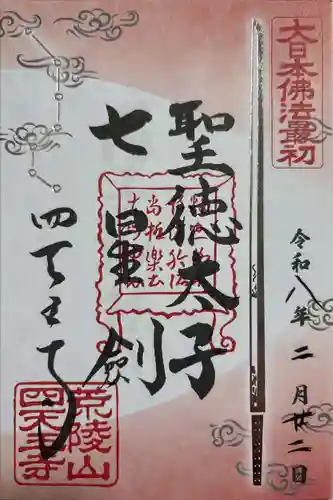 大日本佛法最初
令和八年二月廿二日
聖徳太子
七星劍
四天王寺
荒陵山
四天王寺